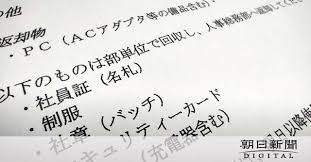 の他
返却物
・PC（ACアダプタ等の備品含む）
以下のものは部単位で回収し、人事総務部へ返還してく
・社員証（名札）
・制服
・社章（バッチ）
キュリティーカード
（充電器含む）
日以降
朝日新聞
DIGITAL